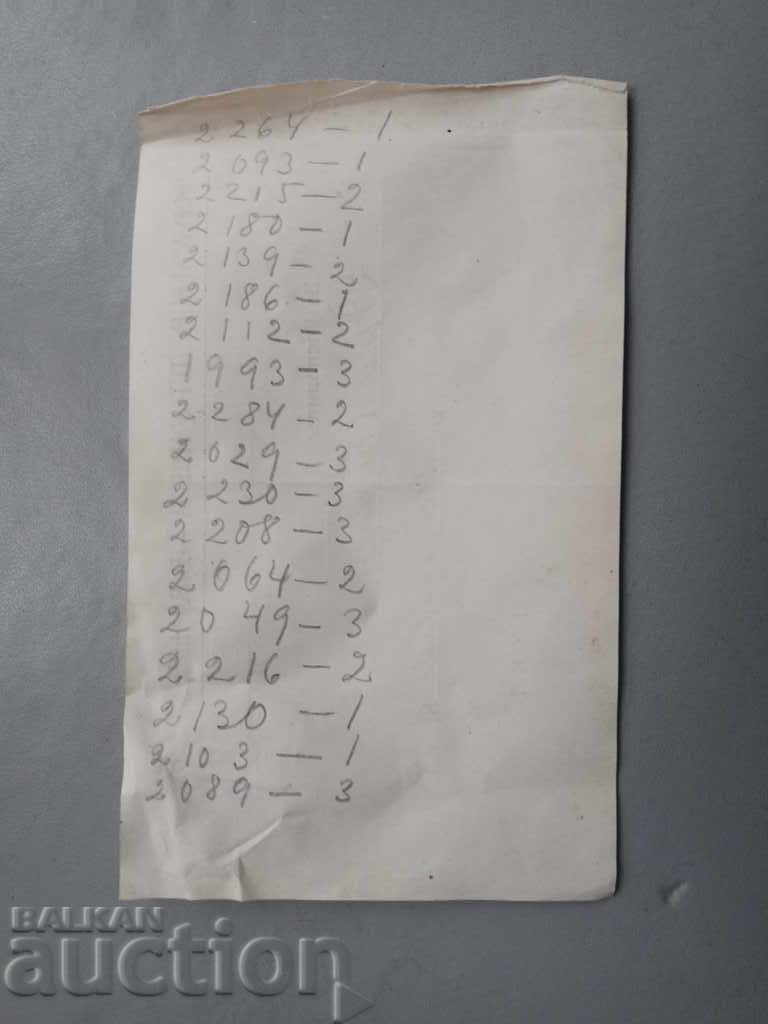 2264 – 1
2093 – 1
2215 – 2
2180 – 1
2139 – 2
2186 – 1
2112 – 2
1993 – 3
2284 – 2
2029 – 3
2230 – 3
2208 – 3
2064 – 2
2049 – 3
2216 – 2
2130 – 1
2103 – 1
2089 – 3
BALKAN
auction